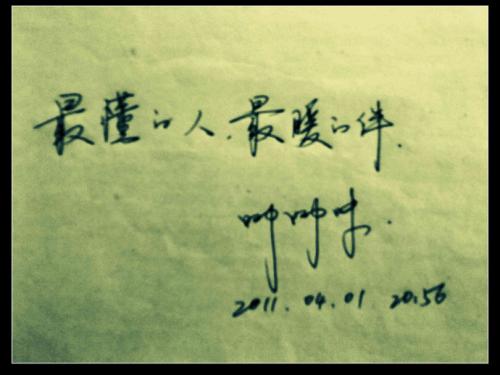 最懂的人.最暖的伴.
2011.04.01 20:56